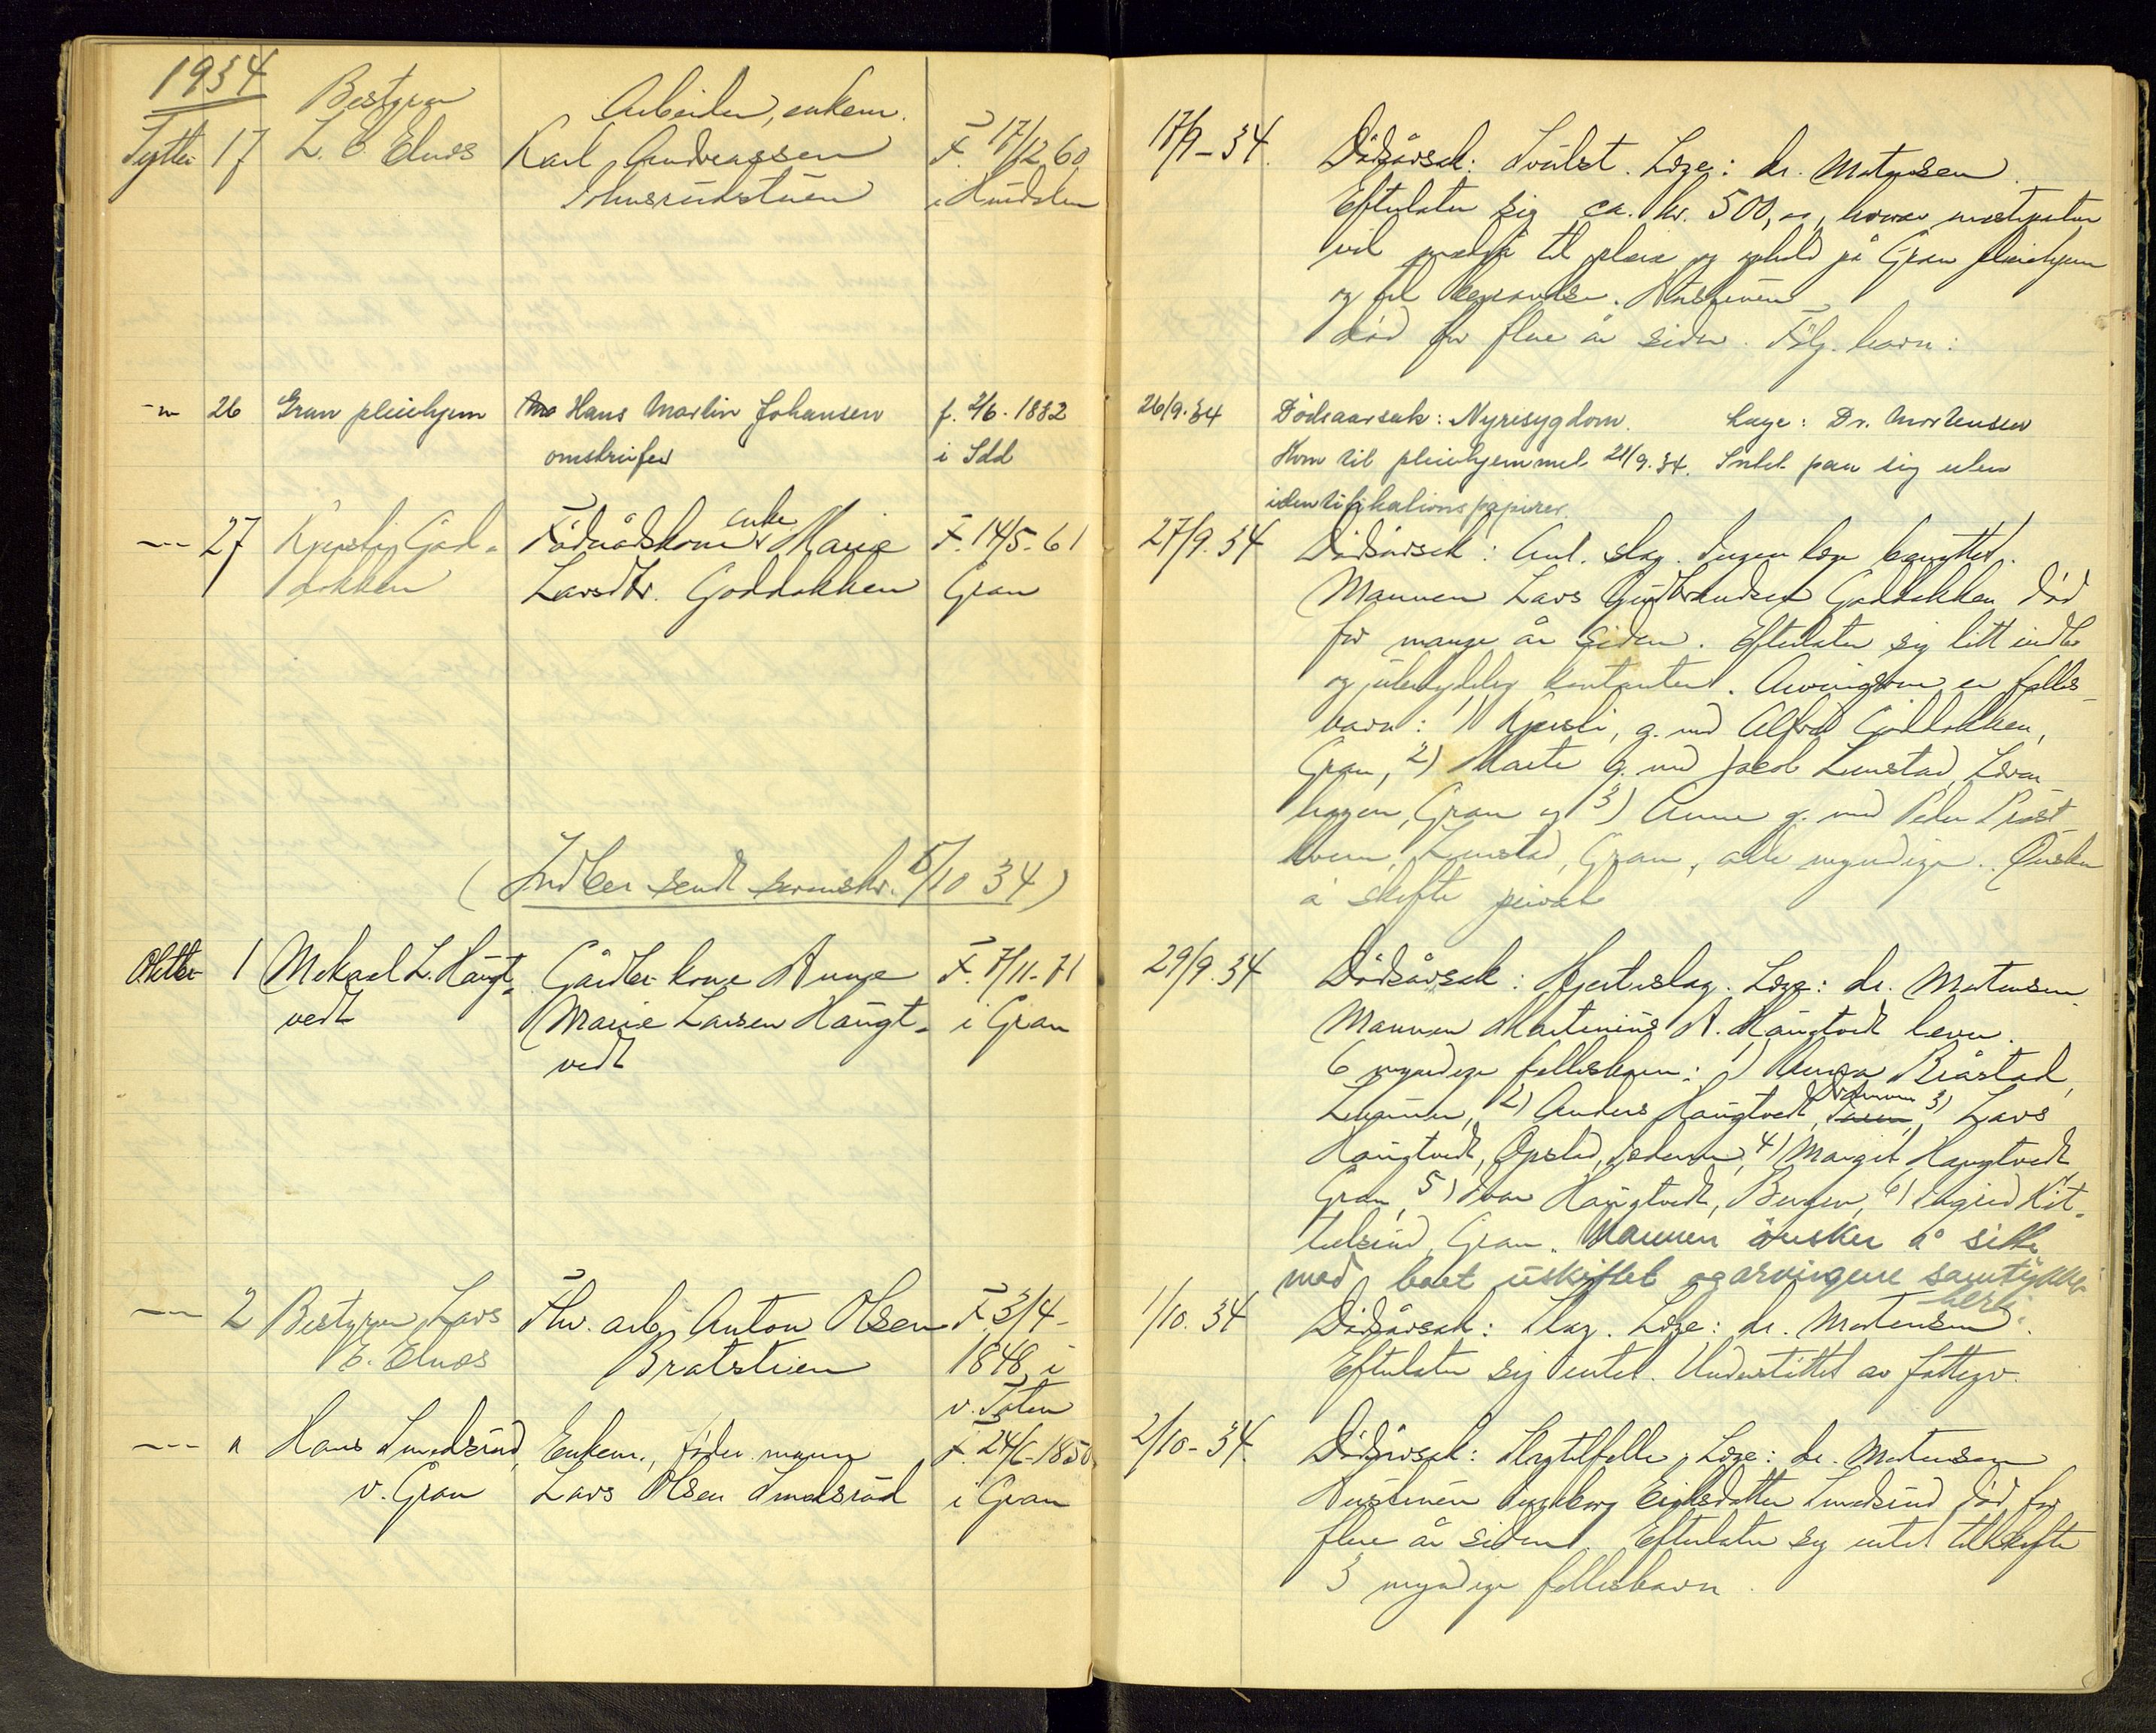 1934
Septbr 17 Bestyrer L. E. Elnæs Arbeider, enkem. Karl Andreassen Johnsrudstuen F. 17/12 60 i Hurdalen
17/9-34. Dødsårsak: Svulst. Læge: dr. Mortensen.
Efterlater sig ca. kr. 500,00, hvorav mesteparten
vil medgå til pleie og ophold på Gran pleiehjem
og til begravelse. Hustruen
død for flere år siden. Følg. barn:
-"- 26 Gran pleiehjem Hans Martin Johansen omstreifer f. 2/6-1882 i Idd
26/9.34 Dødsaarsak: Nyresygdom. Læge: Dr. Mortensen
Kom til pleiehjemmet 21/9.34. Intet paa sig uten
identifikationspapirer.
-"- 27 Kjersti Goddokken Föderådskone enke Marie Larsdtr. Goddokken F. 14/5-61 Gran
27/9.34 Dødsårsak: Ant. slag. Ingen læge benyttet.
Mannen Lars Gudbrandsen Goddokken død
for mange år siden. Efterlater sig litt indbo
og ubetydelig kontanter. Arvinger er felles-
barn: 1) Kjersti, g. med Alfred Goddokken,
Gran, 2) Marte g. med Jacob Lunstad,
Gran og 3) Anne g. med Peder
Lunstad, Gran, alle myndige. Ønsker
å skifte privat
(Indber sendt sorenskr. 5/10 34)
Oktbr 1 Mekael L. Haugt-
vedt
Gårdbr. kone Anne
Marie Larsen Haugt-
vedt
F. 7/11-71
i Gran
29/9.34 Dødsårsak: Hjerteslag. Læge: dr. Mortensen.
Mannen Martinius A. Haugtvedt lever.
6 myndige fellesbarn: 1)
2) Anders Haugtvedt, 3) Lars
Haugtvedt, 4) Margit Haugtvedt,
Gran, 5) Ivar Haugtvedt, Bergen, 6) Ingrid Kit-
telsrud, Gran. Mannen ønsker å sitte
med boet uskiftet og arvingene samtykker
heri.
-"- 2 Bestyrer Lars
E. Elnæs
Fhv. arb. Anton Olsen
Bratstuen
F. 3/4-
1848 i
v. Toten
1/10.34 Dødsårsak: Slag. Læge: dr. Mortensen.
Efterlater sig intet. Understøttet av fattigv.
-"- " Hans Smedsrud,
v. Gran
Enkem., föder. mann
Lars Olsen Smedsrud
F. 24/6-1850
i Gran
2/10-34. Dødsårsak: Slagtilfelle, Læge: dr. Mortensen
Hustruen Ingeborg Eriksdatter Smedsrud død for
flere år siden. Efterlater sig intet til skifte
3 myndige fellesbarn.